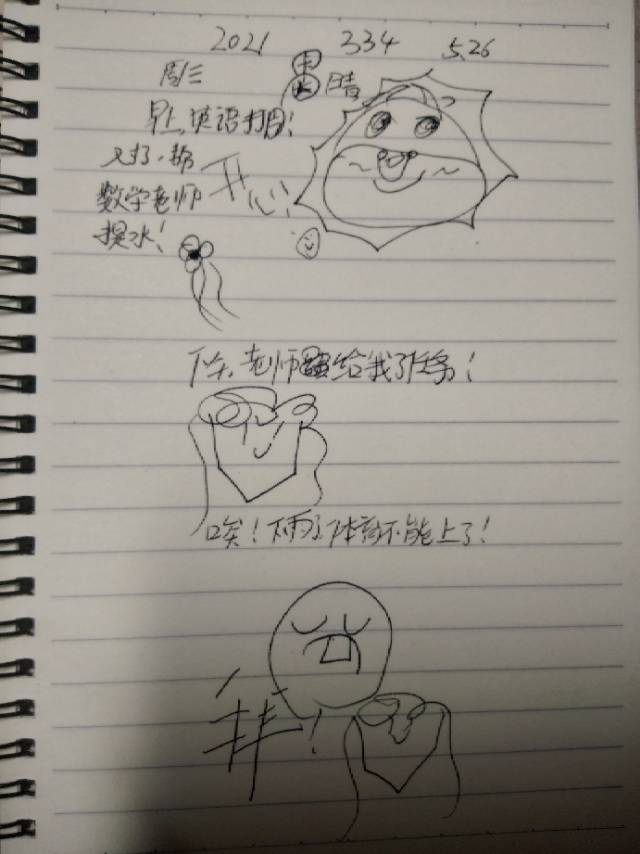 2021 334 5.26
周三 晴
早上,英语扫目!
又扫,帮
数学老师
提水!
开心!
下午,老师给我了任务!
唉!下雨了体育不能上了!